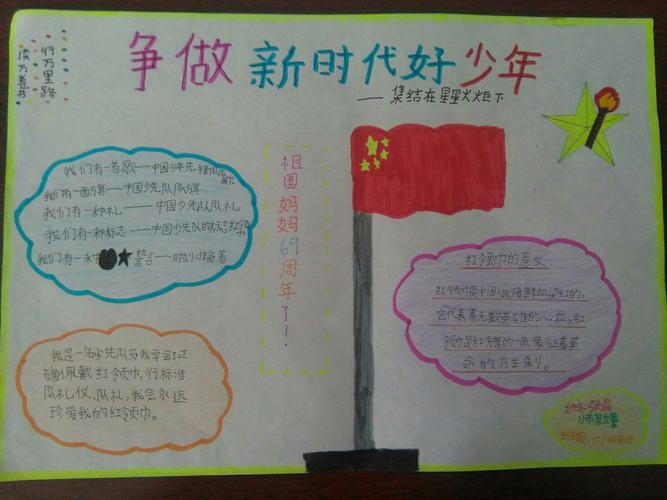 读万卷书
行万里路
争做新时代好少年
——集结在星星火炬下
我们有一首歌——中国少年先锋队队歌
我们有一面旗——中国少先队队旗
我们有一种礼——中国少先队队礼
我们有一种标志——中国少先队的标志红领巾
我们有一种 誓言——时刻准备着
祖国妈妈69周年了!
红领巾的意义
红领巾是中国人民用鲜血染红的,
它代表着无数英雄的心血,红
领巾是红方旗的一角,象征着革
命的月生利。
我是一名少先队员我学会了正
确佩戴红领巾,行标准
队礼仪,队礼,我会永远
珍爱我的红领巾。
姓名:张晶